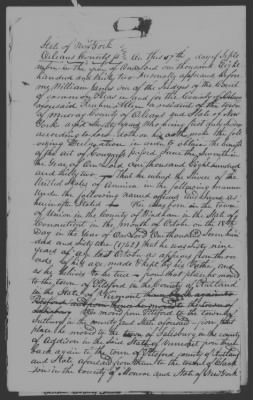 State of New York
Orleans County ss On this 17th day of Septe
mber in the year of our Lord one thousand Eight
hundred and thirty two personally appeared before
me William one of the Judges of the Court
of Common Pleas in and for the County of Orleans
aforesaid a resident of the town
of Murray County of Orleans and State of New
York aged years who being first duly sworn
according to Law doth on his oath make the foll
owing Declaration in order to obtain the benefit
of the act of Congress passed June the Seventh
the Year of Our Lord One thousand Eight hundred
and thirty two That he entered the Service of the
United States of America in the following manner
under the following named officers and served as
hereinafter Stated He was born in the town
of Union in the County of Windham in the State of
Connecticut on the month of October on the 18th
Day in the Year of Our Lord One thousand Seven hun
dred and Sixty two (1762) that he was Sixty nine
years of age last October as appears from the rec
ords of his age made by his father and
as he believes to be true from that place he moved
to the town of Pittsford in the County of Rutland
in the State of Vermont
moved from Pittsford to the
in the County and State aforesaid from that
place he moved to the town of Salisbury in the county
of Addison in the said State of Vermont
back again to the town of Pittsford county of Rutland
and State aforesaid to the town of
son in the County of Monroe and State of New York